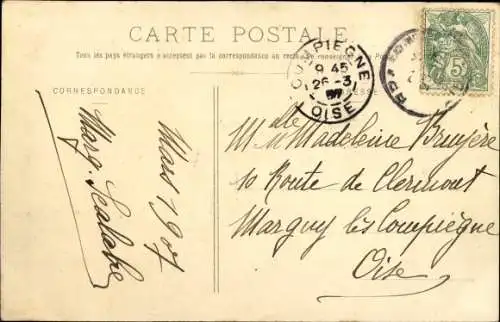 CARTE POSTALE
Tous les pays étrangers n'acceptent pas la correspondance au recto
CORRESPONDANCE
Mars 1907
Marg.
COMPIEGNE
9 45
26-3
07
OISE
5
Mlle Madeleine Bruyère
10 Route de Clermont
Margny lès Compiègne
Oise